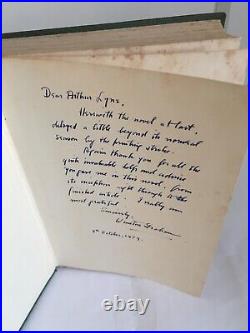 Dear Arthur Lyne,
Herewith the novel at last,
delayed a little beyond its normal
season by the printing strike.
Again thank you for all the
quite invaluable help and advice
you gave me on this novel, from
its inception right through to the
finished article. I really am
most grateful.
Sincerely,
Winston Graham
5th October, 1959.